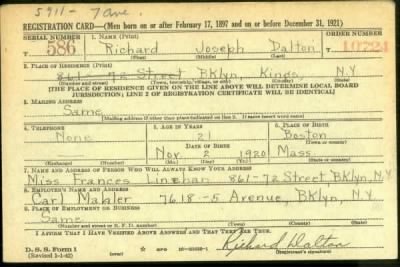 5911 - 7 Ave.
REGISTRATION CARD—(Men born on or after February 17, 1897 and on or before December 31, 1921)
SERIAL NUMBER
1. NAME (Print)
ORDER NUMBER
586
Richard Joseph Dalton
10724
(First) (Middle) (Last)
2. PLACE OF RESIDENCE (Print)
861 - 72 Street BKlyn, Kings, N.Y.
(Number and street) (Town, township, village, or city) (County) (State)
[THE PLACE OF RESIDENCE GIVEN ON THE LINE ABOVE WILL DETERMINE LOCAL BOARD
JURISDICTION; LINE 2 OF REGISTRATION CERTIFICATE WILL BE IDENTICAL]
3. MAILING ADDRESS
Same
[Mailing address if other than place indicated on line 2. If same insert word same]
4. TELEPHONE
5. AGE IN YEARS
6. PLACE OF BIRTH
None
21
Boston
DATE OF BIRTH
(Town or county)
Nov. 2 1920
Mass.
(Exchange) (Number)
(Mo.) (Day) (Yr.)
(State or country)
7. NAME AND ADDRESS OF PERSON WHO WILL ALWAYS KNOW YOUR ADDRESS
Miss Frances Linehan 861-72 Street BKlyn, N.Y.
8. EMPLOYER'S NAME AND ADDRESS
Carl Mahler 7618 - 5 Avenue, BKlyn, N.Y.
9. PLACE OF EMPLOYMENT OR BUSINESS
Same
(Number and street or R. F. D. number) (Town) (County) (State)
I AFFIRM THAT I HAVE VERIFIED ABOVE ANSWERS AND THAT THEY ARE TRUE.
D. S. S. Form 1
(Revised 1-1-42)
(over)
Richard Dalton
(Registrant's signature)